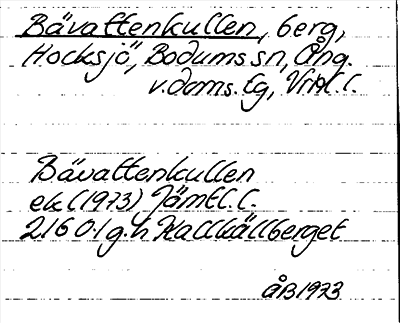 Bävattenkullen, berg,
Hocksjö, Bodums sn, Ång.
v.doms. Eg, Vrml. l.
Bävattenkullen
ek (1973) Jämtl. l.
216 0.1 g.h Kallkällberget
ÅB 1973